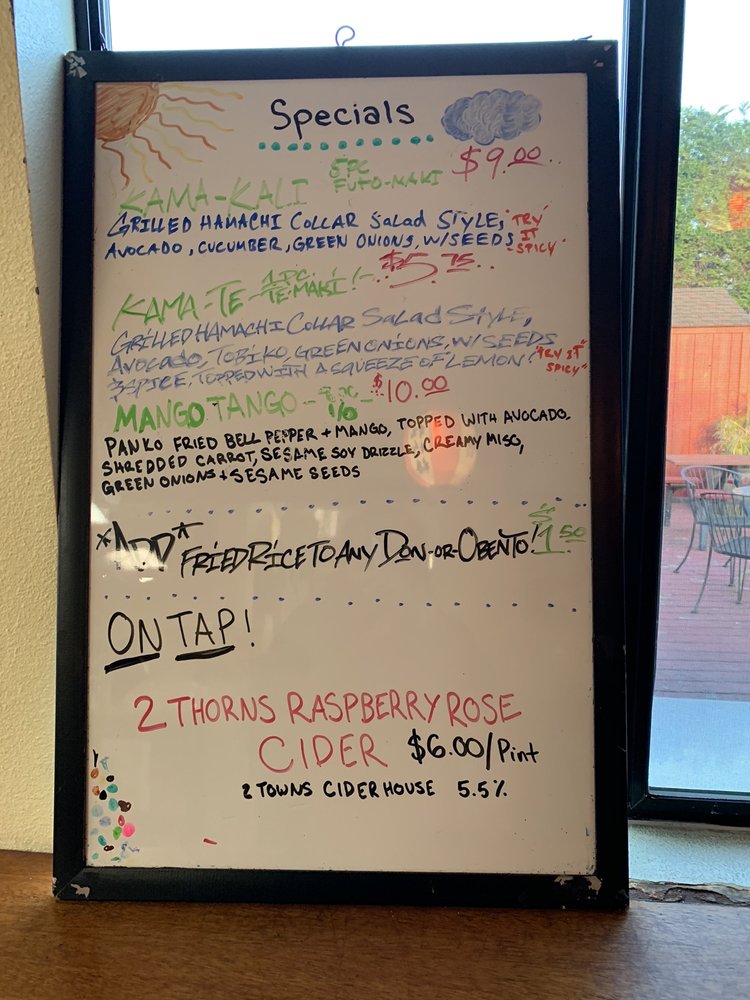 Specials
KAMA-KALI 5PC FUTO-MAKI $9.00
GRILLED HAMACHI COLLAR Salad STYLE, "TRY
AVOCADO, CUCUMBER, GREEN ONIONS, W/SEEDS IT SPICY"
KAMA-TE- 1PC. TE-MAKI!- $5.75
GRILLED HAMACHI COLLAR Salad Style,
AVOCADO, TOBIKO, GREEN ONIONS, W/SEEDS
&SPICE, TOPPED WITH A SQUEEZE OF LEMON! "TRY IT SPICY"
MANGO TANGO - PC I/O - $10.00
PANKO FRIED BELL PEPPER + MANGO, TOPPED WITH AVOCADO.
SHREDDED CARROT, SESAME SOY DRIZZLE, CREAMY MISO,
GREEN ONIONS + SESAME SEEDS
*ADD* FRIED RICE TO ANY DON-OR-OBENTO! $1.50
ON TAP!
2 THORNS RASPBERRY ROSE
CIDER $6.00/Pint
2 TOWNS CIDERHOUSE 5.5%